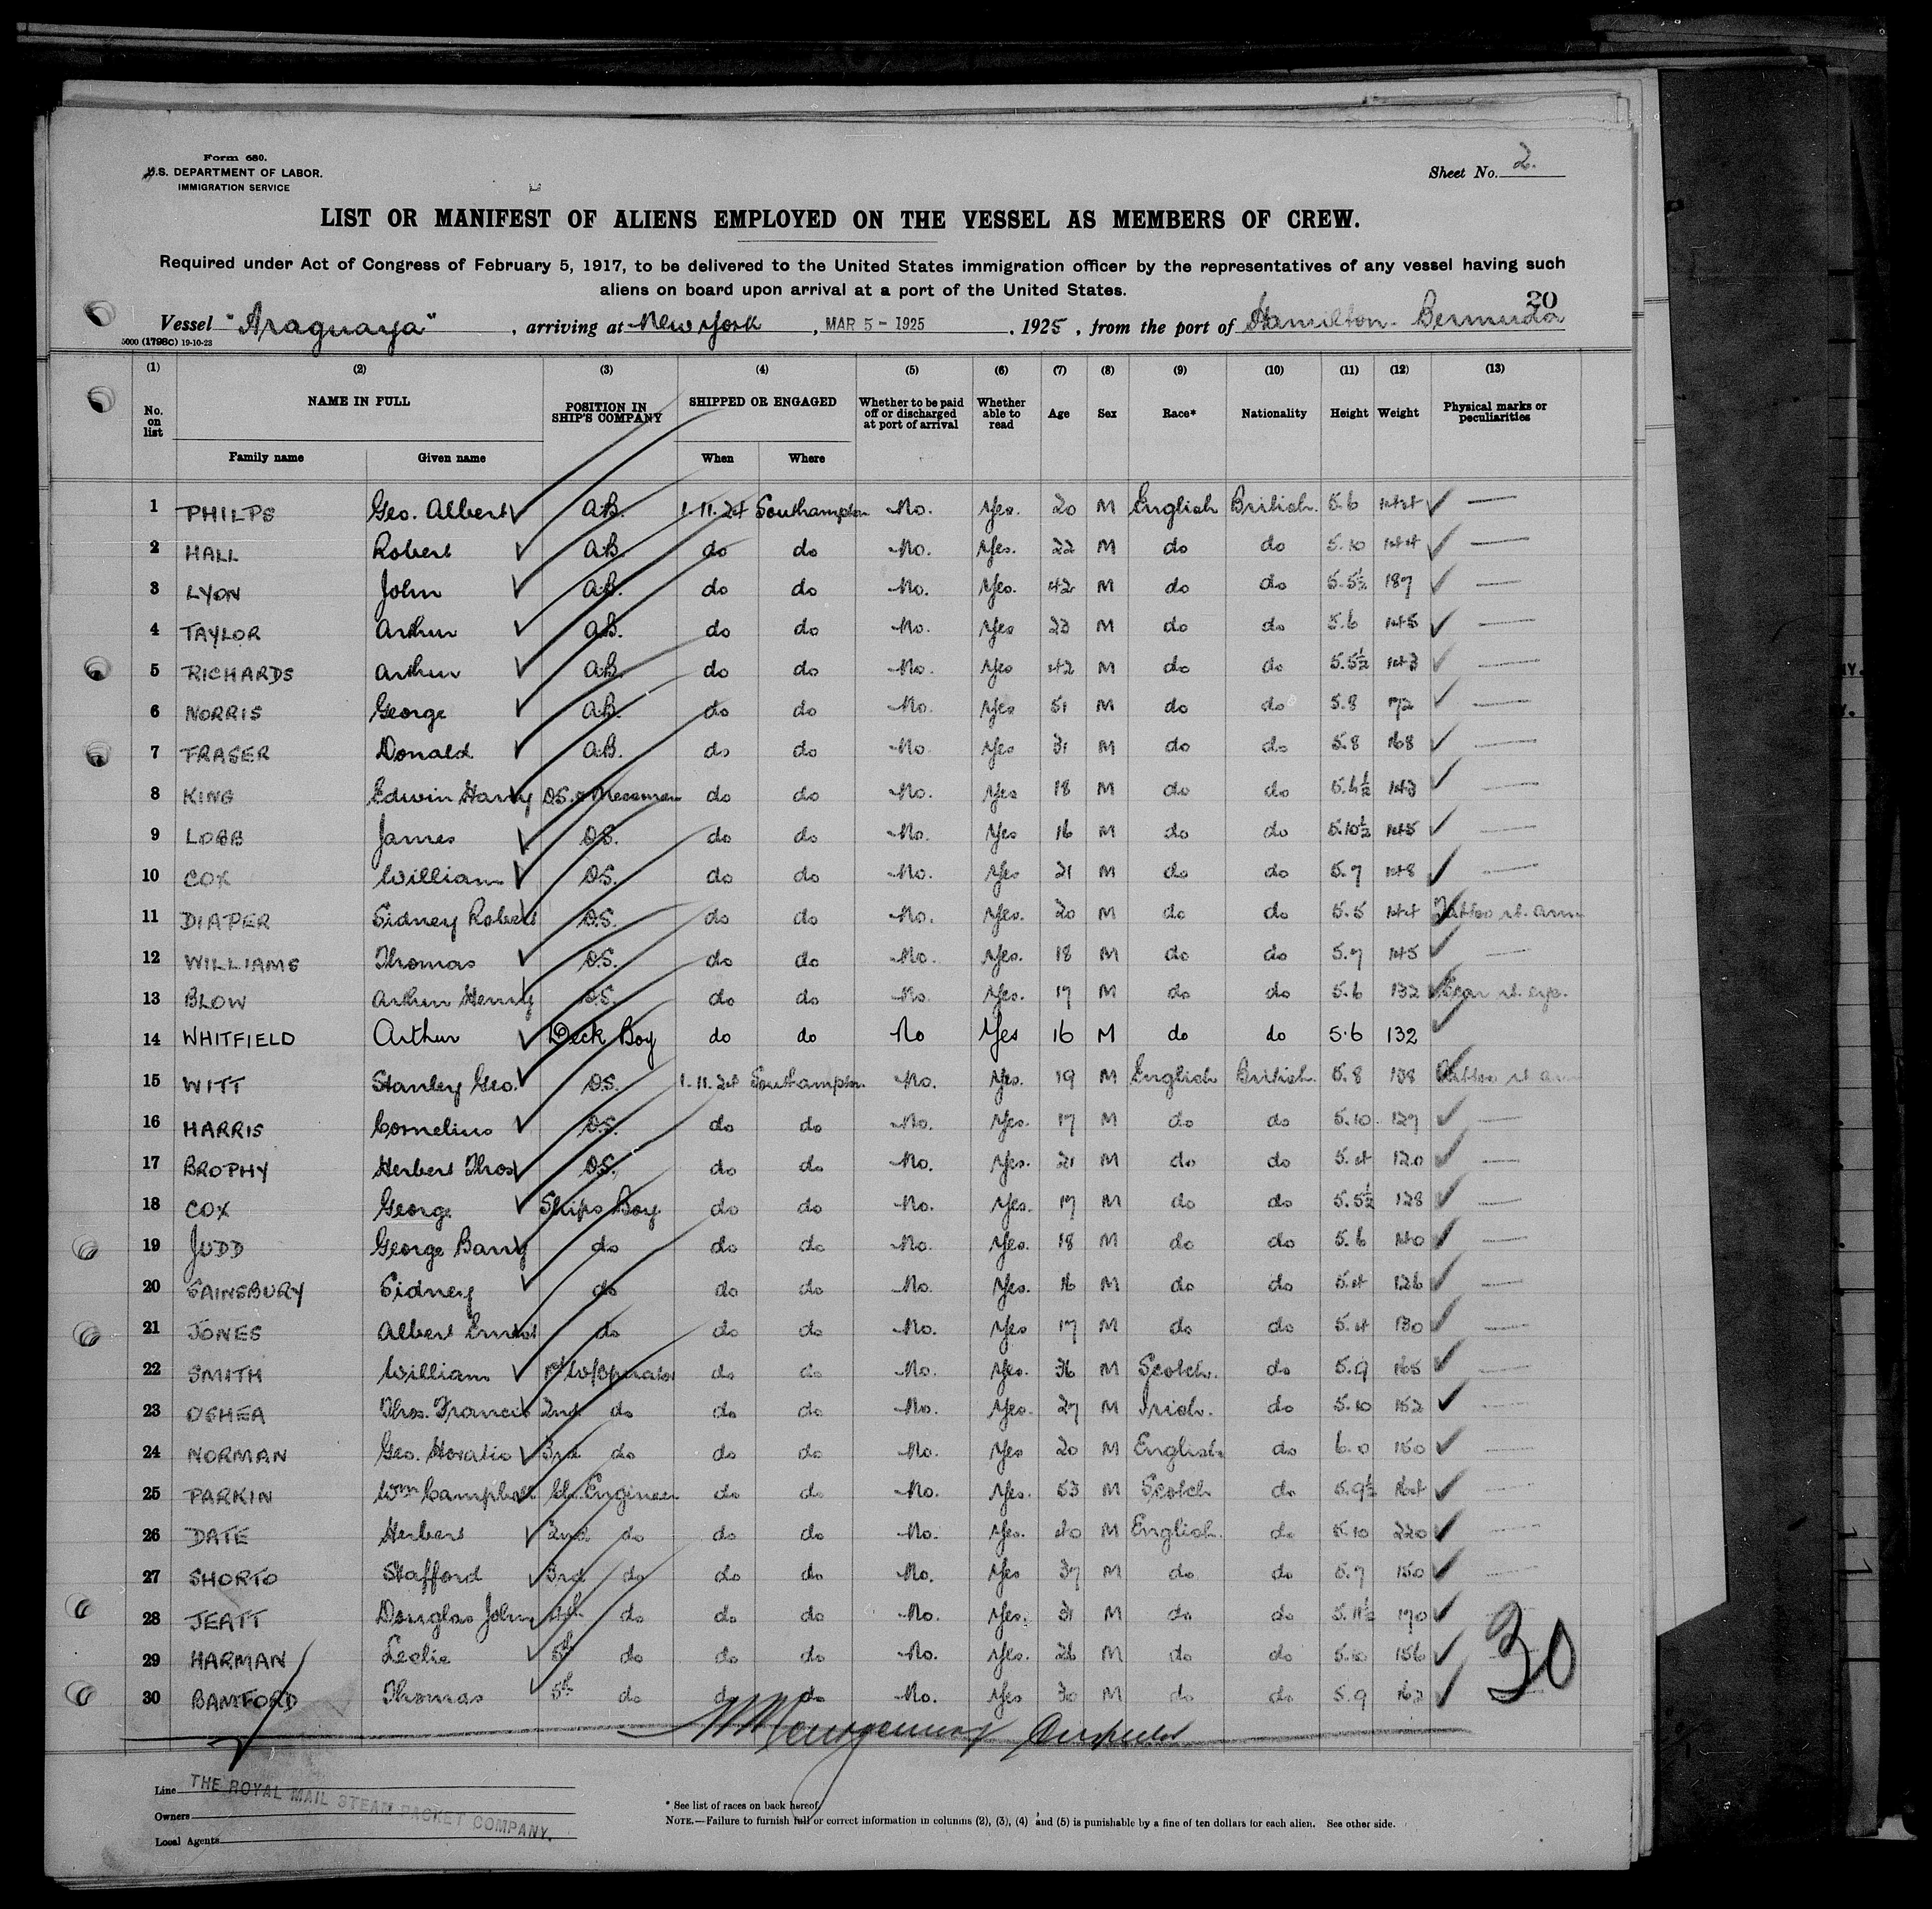 Form 680.
U.S. DEPARTMENT OF LABOR.
IMMIGRATION SERVICE
Sheet No. 2.
LIST OR MANIFEST OF ALIENS EMPLOYED ON THE VESSEL AS MEMBERS OF CREW.
Required under Act of Congress of February 5, 1917, to be delivered to the United States immigration officer by the representatives of any vessel having such
aliens on board upon arrival at a port of the United States.
20
Vessel "Araguaya", arriving at New York, MAR 5 - 1925, 1925, from the port of Hamilton - Bermuda
5000 (1798C) 19-10-23
(1) (2) (3) (4) (5) (6) (7) (8) (9) (10) (11) (12) (13)
No. on list NAME IN FULL POSITION IN SHIP'S COMPANY SHIPPED OR ENGAGED Whether to be paid off or discharged at port of arrival Whether able to read Age Sex Race* Nationality Height Weight Physical marks or peculiarities
Family name Given name When Where
1 PHILPS Geo. Albert A.B. 1.11.24 Southampton No. Yes. 20 M English British. 5.6 144 —
2 HALL Robert A.B. do do No. Yes. 22 M do do 5.10 144 —
3 LYON John A.B. do do No. Yes. 42 M do do 5.5½ 187 —
4 TAYLOR Arthur A.B. do do No. Yes 23 M do do 5.6 145 —
5 RICHARDS Arthur A.B. do do No. Yes 42 M do do 5.5½ 143 —
6 NORRIS George A.B. do do No. Yes 51 M do do 5.8 172 —
7 FRASER Donald A.B. do do No. Yes 31 M do do 5.8 168 —
8 KING Edwin Harry O.S. & Messman do do No. Yes 18 M do do 5.6½ 143 —
9 LOBB James O.S. do do No. Yes 16 M do do 5.10½ 145 —
10 COX William O.S. do do No. Yes 21 M do do 5.7 148 —
11 DIAPER Sidney Robert O.S. do do No. Yes. 20 M do do 5.5 144 Tattoo rt. arm
12 WILLIAMS Thomas O.S. do do No. Yes. 18 M do do 5.7 145 —
13 BLOW Arthur Henry O.S. do do No. Yes. 17 M do do 5.6 132 Scar rt. eye.
14 WHITFIELD Arthur Deck Boy do do No Yes 16 M do do 5.6 132
15 WITT Stanley Geo. O.S. 1.11.24 Southampton No. Yes. 19 M English British. 5.8 138 Tattoo rt arm
16 HARRIS Cornelius O.S. do do No. Yes. 17 M do do 5.10 127 —
17 BROPHY Herbert Thos O.S. do do No. Yes. 21 M do do 5.4 120 —
18 COX George Ships Boy do do No. Yes. 17 M do do 5.5½ 128 —
19 JUDD George Barry do do do No. Yes. 18 M do do 5.6 140 —
20 SAINSBURY Sidney do do do No. Yes. 16 M do do 5.4 126 —
21 JONES Albert Ernest do do do No. Yes 17 M do do 5.4 130 —
22 SMITH William 1st W/Operator do do No. Yes. 36 M Scotch. do 5.9 165 —
23 OSHEA Thos. Francis 2nd do do do No. Yes. 27 M Irish. do 5.10 152 —
24 NORMAN Geo. Horatio 3rd do do do No. Yes 20 M English do 6.0 150 —
25 PARKIN Wm Campbell Ch. Engineer do do No. Yes. 53 M Scotch do 5.9½ 164 —
26 DATE Herbert 2nd do do do No. Yes. 40 M English. do 5.10 220 —
27 SHORTO Stafford 3rd do do do No. Yes 37 M do do 5.7 150 —
28 JEATT Douglas John 4th do do do No. Yes. 31 M do do 5.11½ 170
29 HARMAN Leslie 5th do do do No. Yes. 26 M do do 5.10 156
30 BAMFORD Thomas 5th do do do No. Yes 30 M do do 5.9 162
30
Montgomery Inspector
Line
Owners
Local Agents
THE ROYAL MAIL STEAM PACKET COMPANY.
* See list of races on back hereof.
NOTE.—Failure to furnish full or correct information in columns (2), (3), (4) and (5) is punishable by a fine of ten dollars for each alien. See other side.